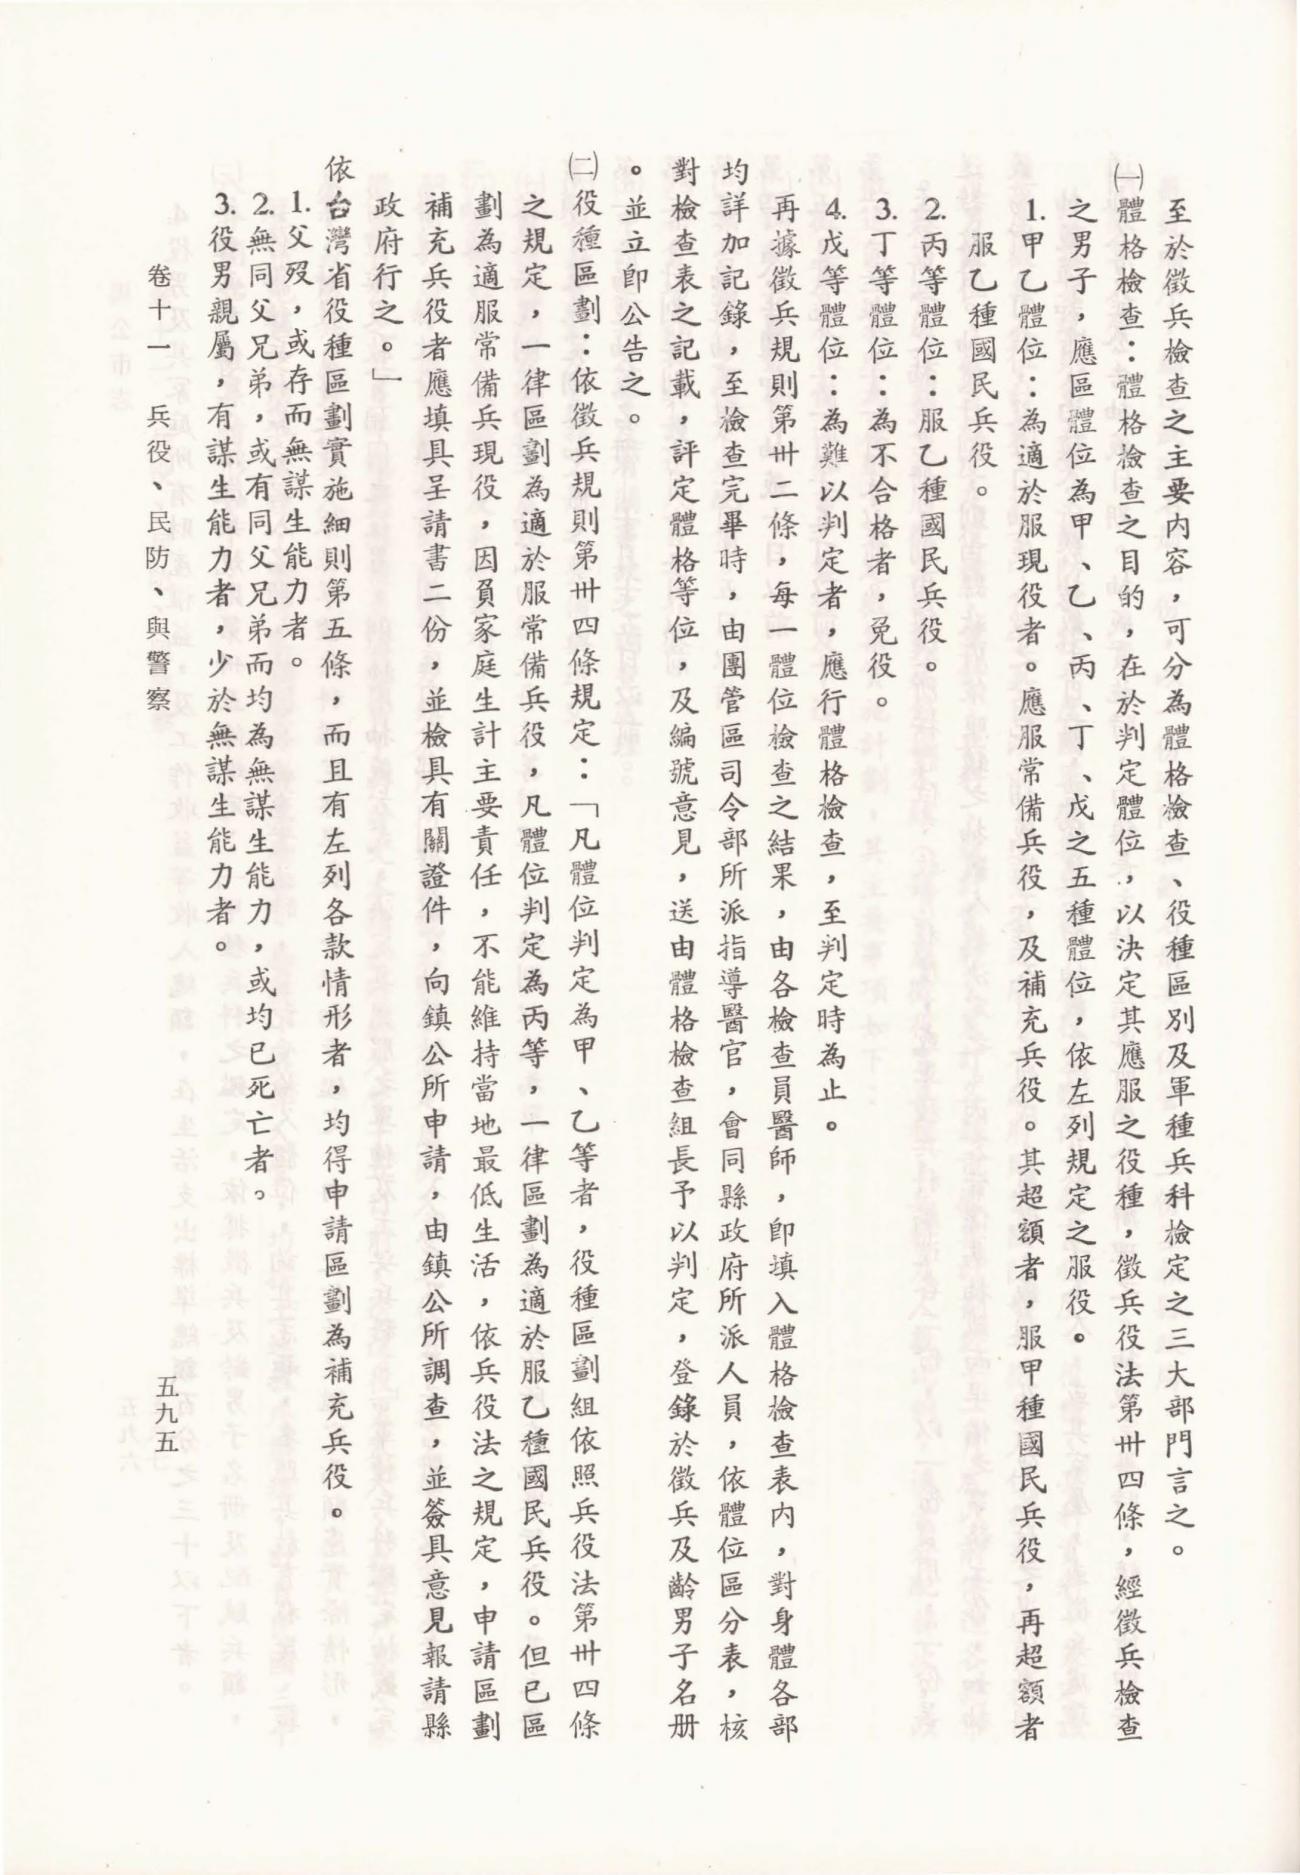 至於徵兵檢查之主要內容，可分為體格檢查、役種區別及軍種兵科檢定之三大部門言之。
㈠體格檢查：體格檢查之目的，在於判定體位，以決定其應服之役種，徵兵役法第卅四條，經徵兵檢查
之男子，應區體位為甲、乙、丙、丁、戊之五種體位，依左列規定之服役。
1.甲乙體位：為適於服現役者。應服常備兵役，及補充兵役。其超額者，服甲種國民兵役，再超額者
服乙種國民兵役。
2.丙等體位：服乙種國民兵役。
3.丁等體位：為不合格者，免役。
4.戊等體位：為難以判定者，應行體格檢查，至判定時為止。
再據徵兵規則第卅二條，每一體位檢查之結果，由各檢查員醫師，即填入體格檢查表內，對身體各部
均詳加記錄，至檢查完畢時，由團管區司令部所派指導醫官，會同縣政府所派人員，依體位區分表，核
對檢查表之記載，評定體格等位，及編號意見，送由體格檢查組長予以判定，登錄於徵兵及齡男子名册
。並立即公告之。
㈡役種區劃：依徵兵規則第卅四條規定：「凡體位判定為甲、乙等者，役種區劃組依照兵役法第卅四條
之規定，一律區劃為適於服常備兵役，凡體位判定為丙等，一律區劃為適於服乙種國民兵役。但已區
劃為適服常備兵現役，因負家庭生計主要責任，不能維持當地最低生活，依兵役法之規定，申請區劃
補充兵役者應填具呈請書二份，並檢具有關證件，向鎮公所申請，由鎮公所調查，並簽具意見報請縣
政府行之。」
依台灣省役種區劃實施細則第五條，而且有左列各款情形者，均得申請區劃為補充兵役。
1.父歿，或存而無謀生能力者。
2.無同父兄弟，或有同父兄弟而均為無謀生能力，或均已死亡者。
3.役男親屬，有謀生能力者，少於無謀生能力者。
卷十一 兵役、民防、與警察
五九五